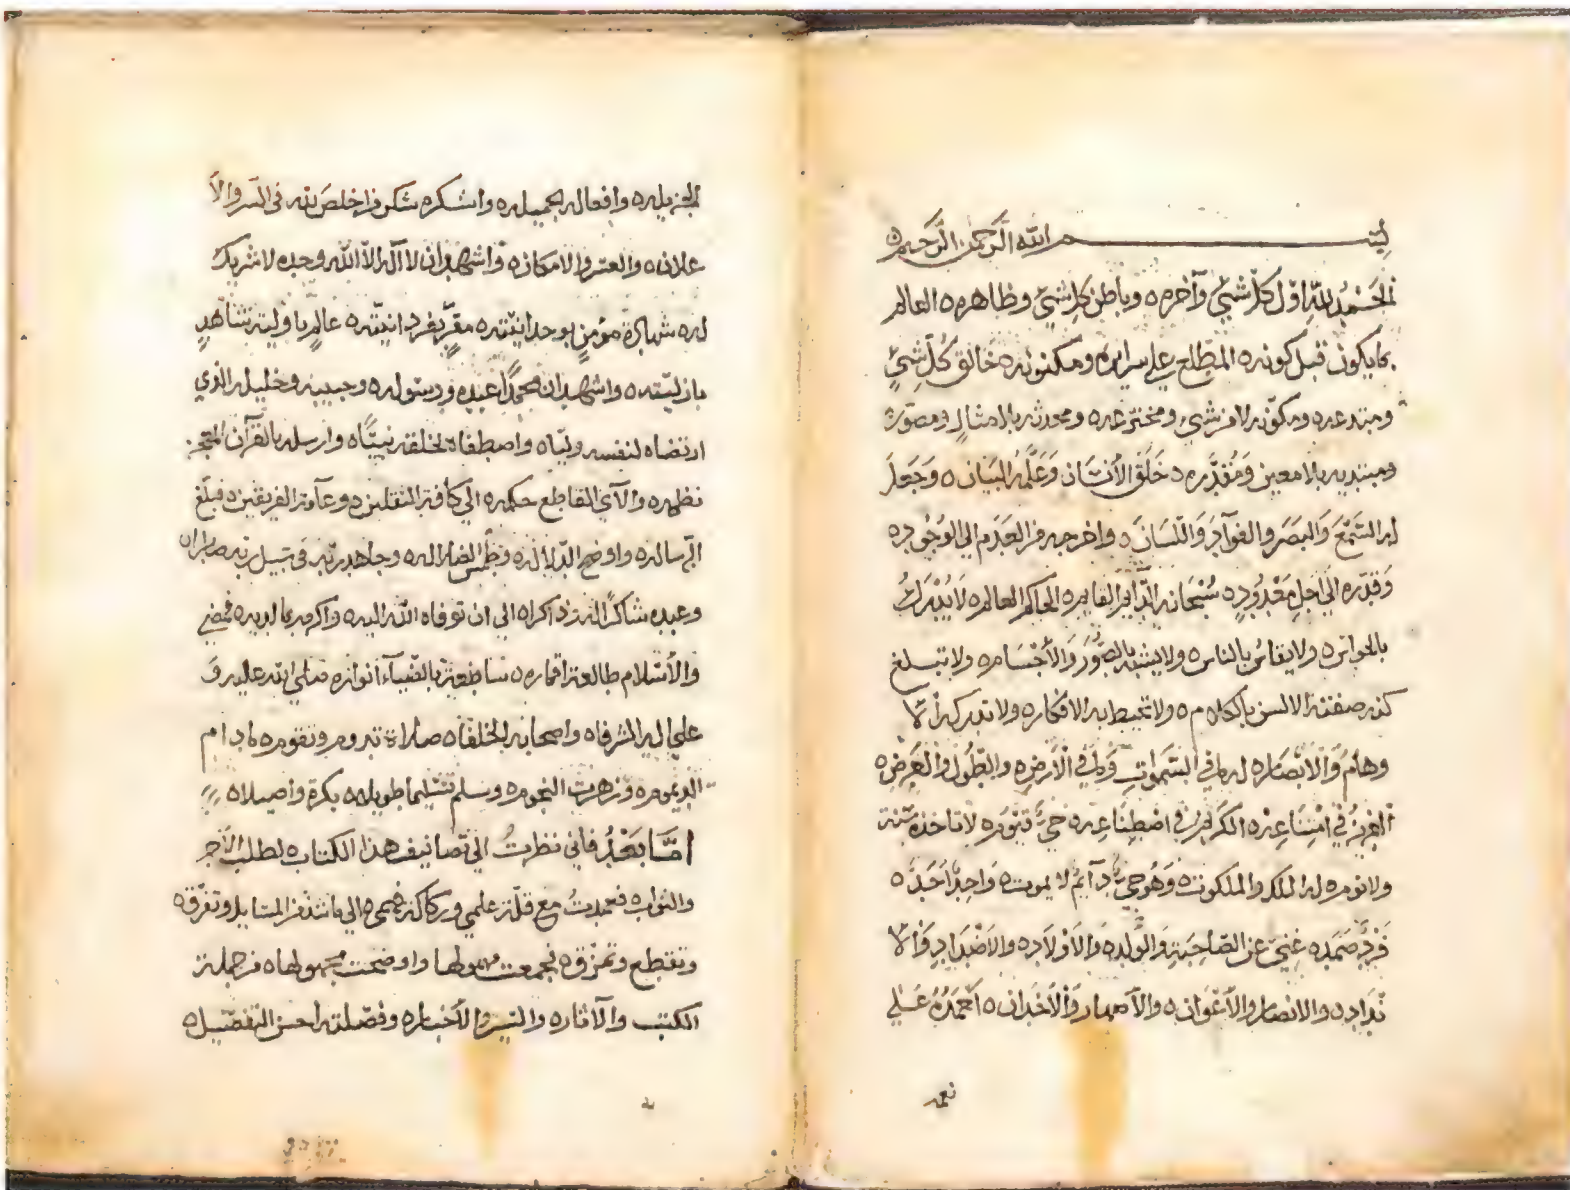 بسم الله الرحمن الرحيم ه
الحمد لله اول كل شيئ وآخره ه وباطن كل شيئ وظاهره ه العالم
بما يكون قبل كونه ه المطلع علي سرايره ومكنونه ه خالق كل شيئ
ومبتدعه ومكونه لا من شيئ ومخترعه ه ومحدثه بلا مثال ومصوره
ومبتديه بلا معين ومقدره ه خلق الأنسان وعلمه البيان ه وجعل
له السمع والبصر والفوآد واللسان ه واخرجه من العدم الي الوجود ه
وقدره الي اجل معدود ه سبحانه الدآيم القايم ه الحاكم العالم ه لا يدرك
بالحواس ه ولا يقاس بالناس ه ولا يشبه بالصور والأجسام ه ولا تبلغ
كنه صفته الالسن بالكلام ه ولا تحيط به الافكار ه ولا تدركه الا
وهام والابصار ه له ما في السموات وما في الأرض ه والطول والعرض ه
العزيز في امتناعه ه الكريم في اصطناعه ه حي قيوم ه لا تاخذه سنة
ولا نوم ه له الملك والملكوت ه وهو حي دآيم لا يموت ه واحد احد ه
فرد صمد ه غني عن الصاحبة والولد ه والاولاد ه والاضداد والا
نداد ه والانصار والأعوان ه والأصهار والأخدان ه احمده علي
نعمه
الجزيله ه وافعاله الجميله ه واشكره شكر من اخلص لله في السر والا
علان ه والعسر والامكان ه واشهد ان لا آله الا الله وحده لا شريك
له ه شهادة مؤمن بوحدانيته ه مقر بفردانيته ه عالم باوليته شاهد
بازليته ه واشهد ان محمدا عبده ورسوله ه وحبيبه وخليله الذي
ارتضاه لنفسه وليا ه واصطفاه لخلقه نبيا ه وارسله بالقرآن المعجز
نظمه ه والآي القاطع حكمه ه الي كافة الثقلين ه وعآمة الفريقين ه فبلغ
الرساله ه واوضح الدلاله ه وطمس الضلاله ه وجاهد في سبيل ربه صابرا ه
وعبده شاكرا ذاكرا ه الي ان توفاه الله اليه ه واكرمه بما لديه ه فمضي
والأسلام طالعة اقماره ه ساطعة بالضيآء انواره صلي الله عليه و
علي اله الشرفاه واصحابه الخلفاه صلاة تدوم وتقوم ه ما دام
الديموم ه وزهرت النجوم ه وسلم تسليما طويلا ه بكرة واصيلا ه
اما بعد فاني نظرت الي تصانيف هذا الكتاب ه لطلب الأجر
والثواب ه فعمدت مع قلة علمي وركاكة فهمي ه الي ما شذ من المسايل وتفرق ه
وتقطع وتمزق ه فجمعت اصولها واوضحت مجهولها ه من جملة
الكتب والآثار ه والسير والأخبار ه وفصلته احسن التفصيل ه